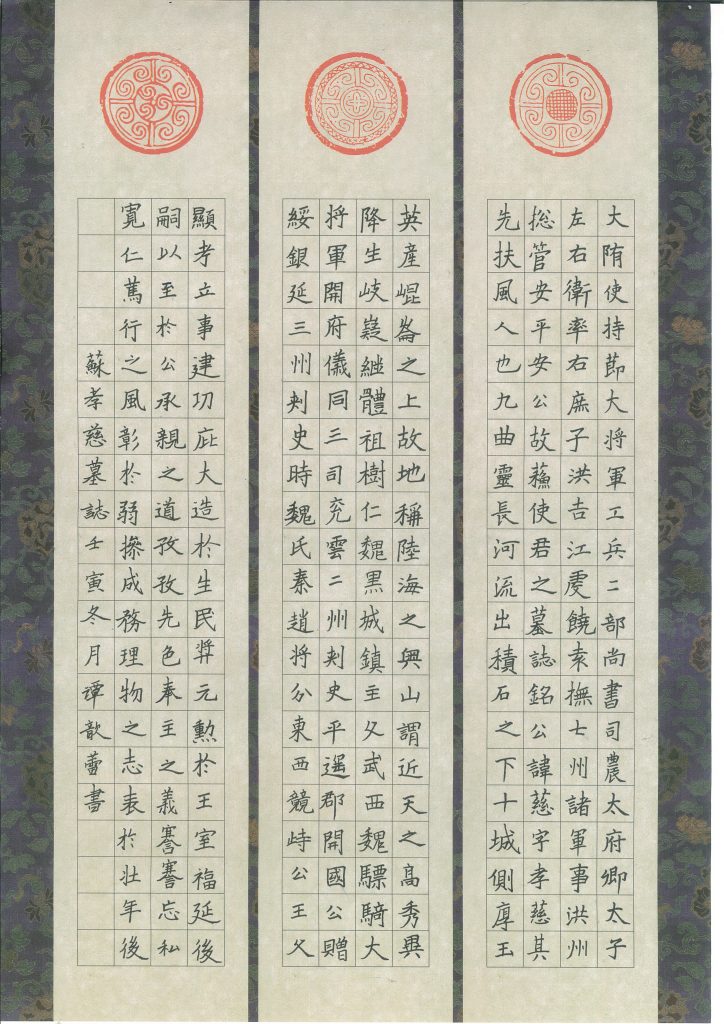 大陏使持節大将軍工兵二部尚書司農太府卿太子
左右衛率右庶子洪吉江虔饒袁撫士州諸軍事洪州
捴管安平安公故蘓使君之墓誌銘公諱慈字孝慈其
先扶風人也九曲靈長河流出積石之下十城側厚玉
英產崐崙之上故地稱陸海之興山謂近天之高秀異
降生岐嶷継體祖樹仁魏黒城鎮主父武西魏驃騎大
将軍開府儀同三司兖雲二州刾史平遥郡開國公贈
綏銀延三州刾史時魏氏秦趙将分東西競峙公王父
顯考立事建功庇大造於生民奨元勲於王室福延後
嗣以至於公承親之道孜孜先色奉主之義謇謇忘私
寬仁篤行之風彰於弱摻成務理物之志表於壯年後
蘇孝慈墓誌壬寅冬月譚歆蕾書